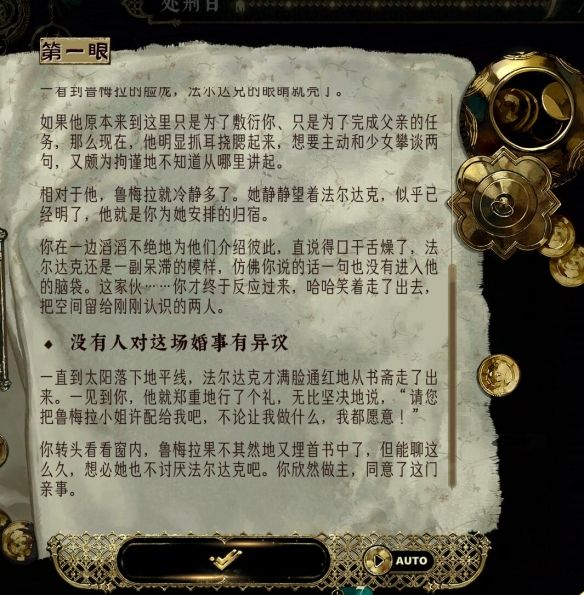 处刑日
第一眼
一看到鲁梅拉的脸庞，法尔达克的眼睛就亮了。
如果他原本来到这里只是为了敷衍你、只是为了完成父亲的任
务，那么现在，他明显抓耳挠腮起来，想要主动和少女攀谈两
句，又颇为拘谨地不知道从哪里讲起。
相对于他，鲁梅拉就冷静多了。她静静望着法尔达克，似乎已
经明了，他就是你为她安排的归宿。
你在一边滔滔不绝地为他们介绍彼此，直说得口干舌燥了，法
尔达克还是一副呆滞的模样，仿佛你说的话一句也没有进入他
的脑袋。这家伙……你才终于反应过来，哈哈笑着走了出去，
把空间留给刚刚认识的两人。
没有人对这场婚事有异议
一直到太阳落下地平线，法尔达克才满脸通红地从书斋走了出
来。一见到你，他就郑重地行了个礼，无比坚决地说，“请您
把鲁梅拉小姐许配给我吧，不论让我做什么，我都愿意！”
你转头看看窗内，鲁梅拉果不其然地又埋首书中了，但能聊这
么久，想必她也不讨厌法尔达克吧。你欣然做主，同意了这门
亲事。
AUTO
7